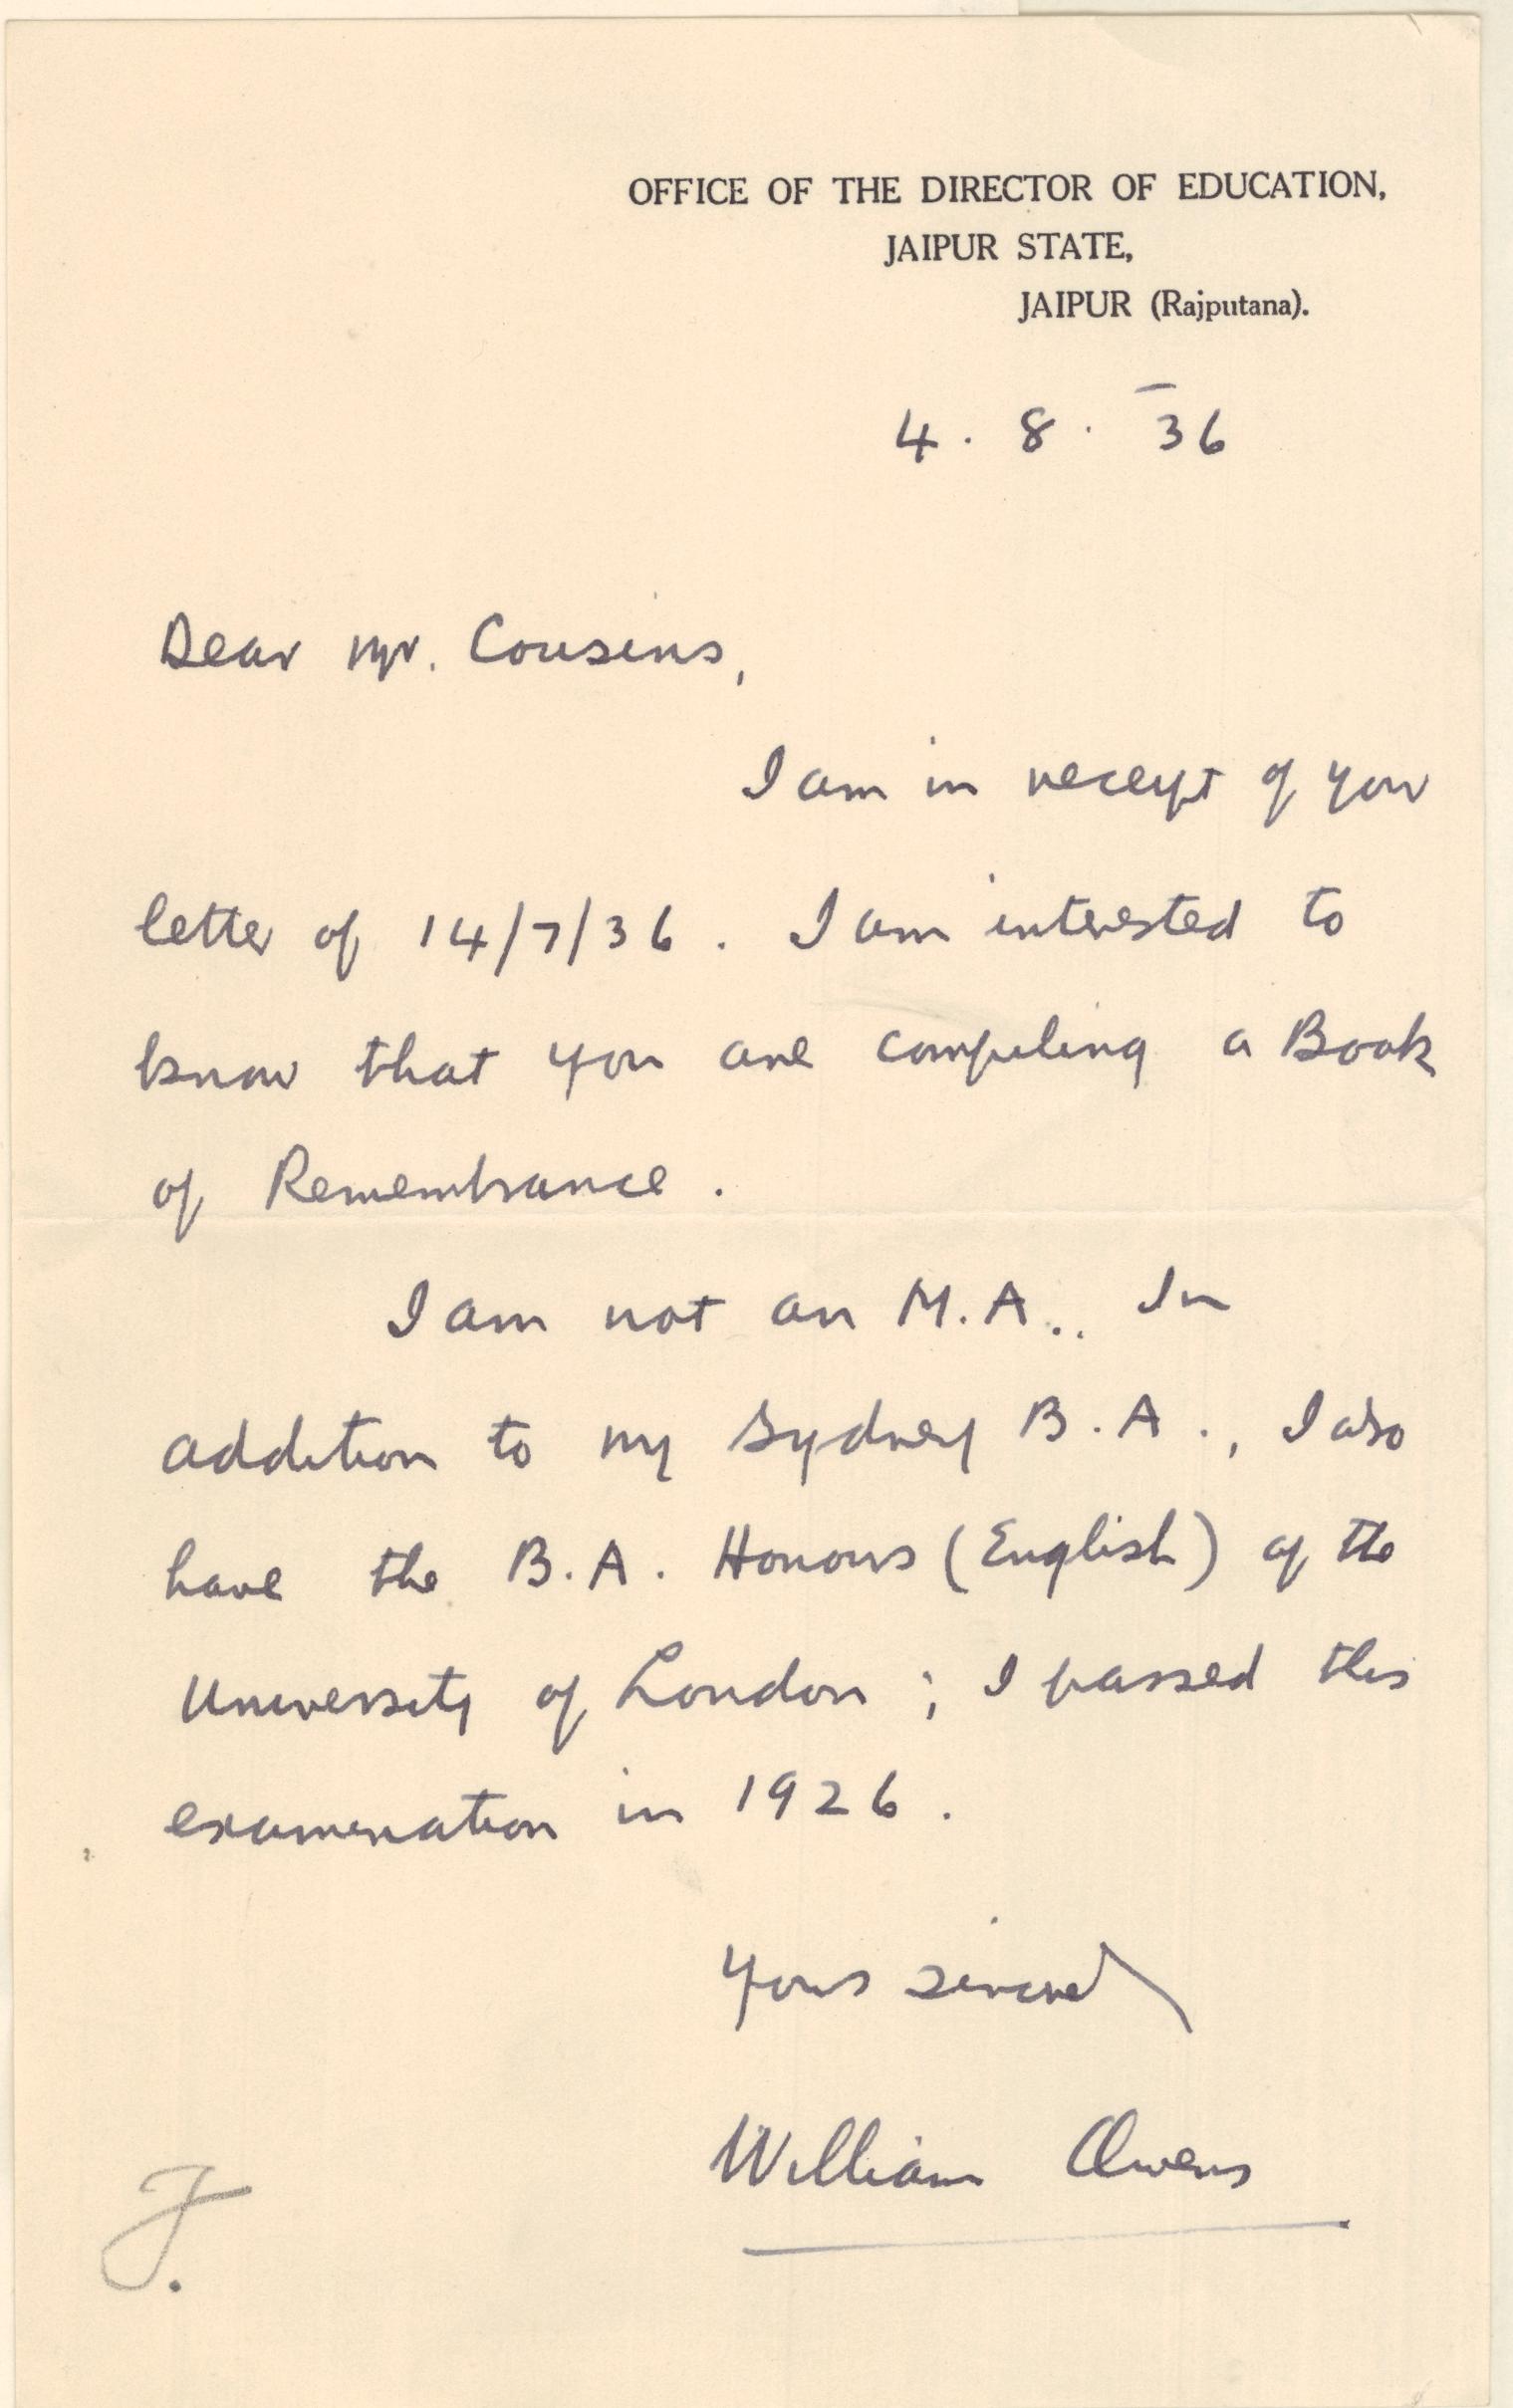 OFFICE OF THE DIRECTOR OF EDUCATION,
JAIPUR STATE,
JAIPUR (Rajputana).
4. 8. 36
Dear Mr. Cousins,
I am in receipt of your
letter of 14/7/36. I am interested to
know that you are compiling a Book
of Remembrance.
I am not an M.A.. In
addition to my Sydney B.A., I also
have the B.A. Honours (English) of the
University of London; I passed this
examination in 1926.
Yours sincerely
William Owens
J.